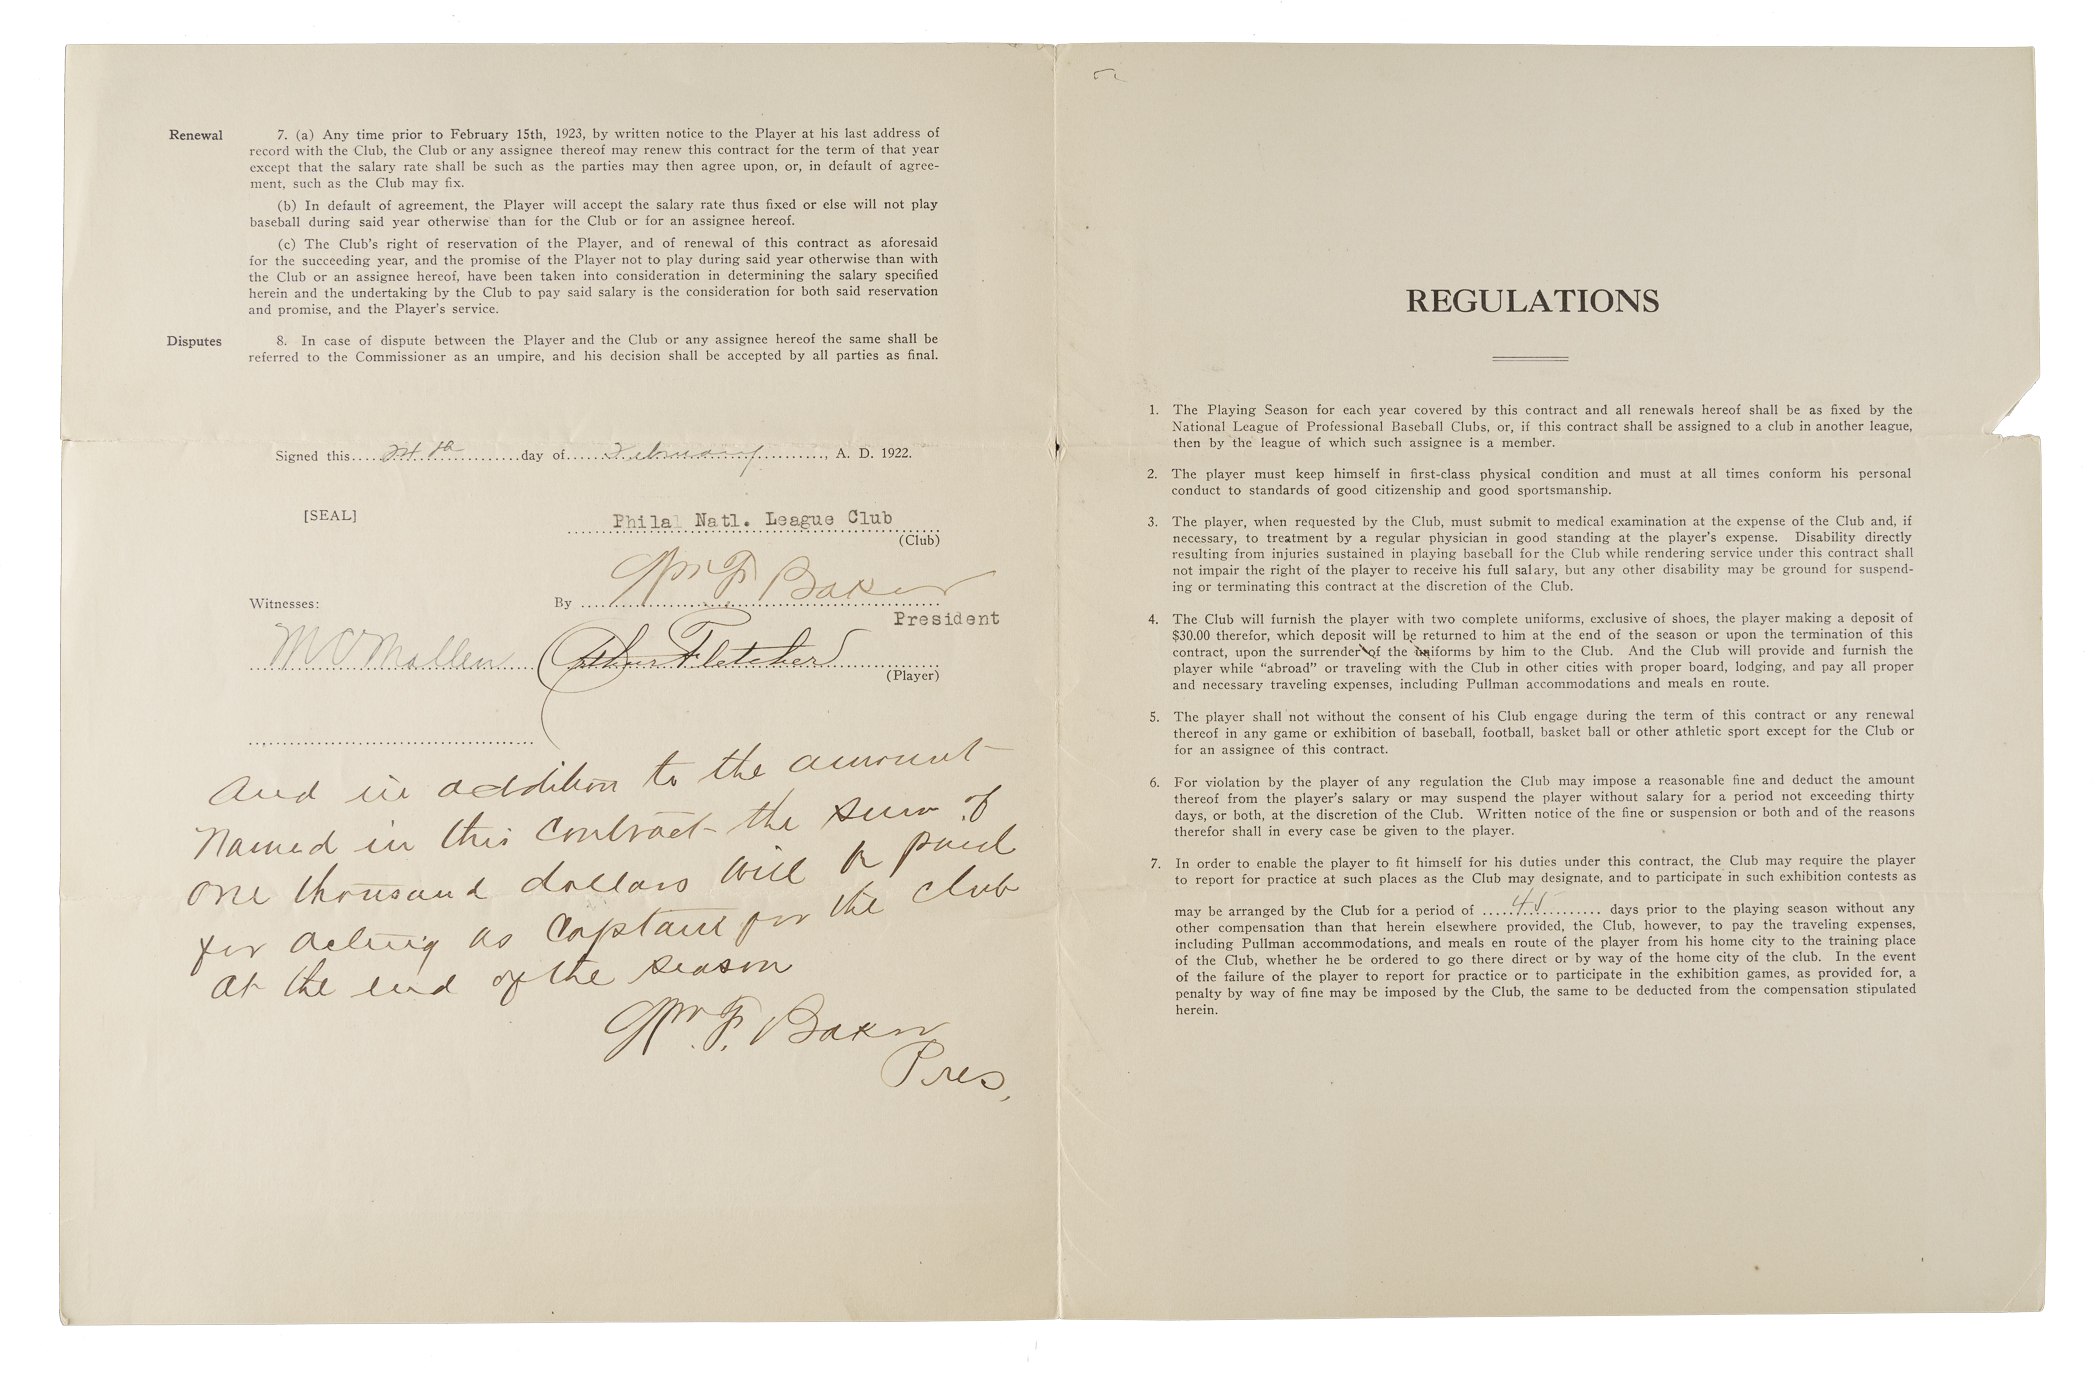 Renewal 7. (a) Any time prior to February 15th, 1923, by written notice to the Player at his last address of
record with the Club, the Club or any assignee thereof may renew this contract for the term of that year
except that the salary rate shall be such as the parties may then agree upon, or, in default of agree-
ment, such as the Club may fix.
(b) In default of agreement, the Player will accept the salary rate thus fixed or else will not play
baseball during said year otherwise than for the Club or for an assignee hereof.
(c) The Club's right of reservation of the Player, and of renewal of this contract as aforesaid
for the succeeding year, and the promise of the Player not to play during said year otherwise than with
the Club or an assignee hereof, have been taken into consideration in determining the salary specified
herein and the undertaking by the Club to pay said salary is the consideration for both said reservation
and promise, and the Player's service.
Disputes 8. In case of dispute between the Player and the Club or any assignee hereof the same shall be
referred to the Commissioner as an umpire, and his decision shall be accepted by all parties as final.
Signed this 24th day of February, A. D. 1922.
[SEAL]
Phila Natl. League Club
(Club)
Witnesses: By Wm F Baker
President
Arthur Fletcher
(Player)
And in addition to the amount
named in this contract the sum of
one thousand dollars will be paid
for acting as Captain for the club
at the end of the season
Wm. F. Baker
Pres.
REGULATIONS
1. The Playing Season for each year covered by this contract and all renewals hereof shall be as fixed by the
National League of Professional Baseball Clubs, or, if this contract shall be assigned to a club in another league,
then by the league of which such assignee is a member.
2. The player must keep himself in first-class physical condition and must at all times conform his personal
conduct to standards of good citizenship and good sportsmanship.
3. The player, when requested by the Club, must submit to medical examination at the expense of the Club and, if
necessary, to treatment by a regular physician in good standing at the player's expense. Disability directly
resulting from injuries sustained in playing baseball for the Club while rendering service under this contract shall
not impair the right of the player to receive his full salary, but any other disability may be ground for suspend-
ing or terminating this contract at the discretion of the Club.
4. The Club will furnish the player with two complete uniforms, exclusive of shoes, the player making a deposit of
$30.00 therefor, which deposit will be returned to him at the end of the season or upon the termination of this
contract, upon the surrender of the uniforms by him to the Club. And the Club will provide and furnish the
player while "abroad" or traveling with the Club in other cities with proper board, lodging, and pay all proper
and necessary traveling expenses, including Pullman accommodations and meals en route.
5. The player shall not without the consent of his Club engage during the term of this contract or any renewal
thereof in any game or exhibition of baseball, football, basket ball or other athletic sport except for the Club or
for an assignee of this contract.
6. For violation by the player of any regulation the Club may impose a reasonable fine and deduct the amount
thereof from the player's salary or may suspend the player without salary for a period not exceeding thirty
days, or both, at the discretion of the Club. Written notice of the fine or suspension or both and of the reasons
therefor shall in every case be given to the player.
7. In order to enable the player to fit himself for his duties under this contract, the Club may require the player
to report for practice at such places as the Club may designate, and to participate in such exhibition contests as
may be arranged by the Club for a period of 45 days prior to the playing season without any
other compensation than that herein elsewhere provided, the Club, however, to pay the traveling expenses,
including Pullman accommodations, and meals en route of the player from his home city to the training place
of the Club, whether he be ordered to go there direct or by way of the home city of the club. In the event
of the failure of the player to report for practice or to participate in the exhibition games, as provided for, a
penalty by way of fine may be imposed by the Club, the same to be deducted from the compensation stipulated
herein.